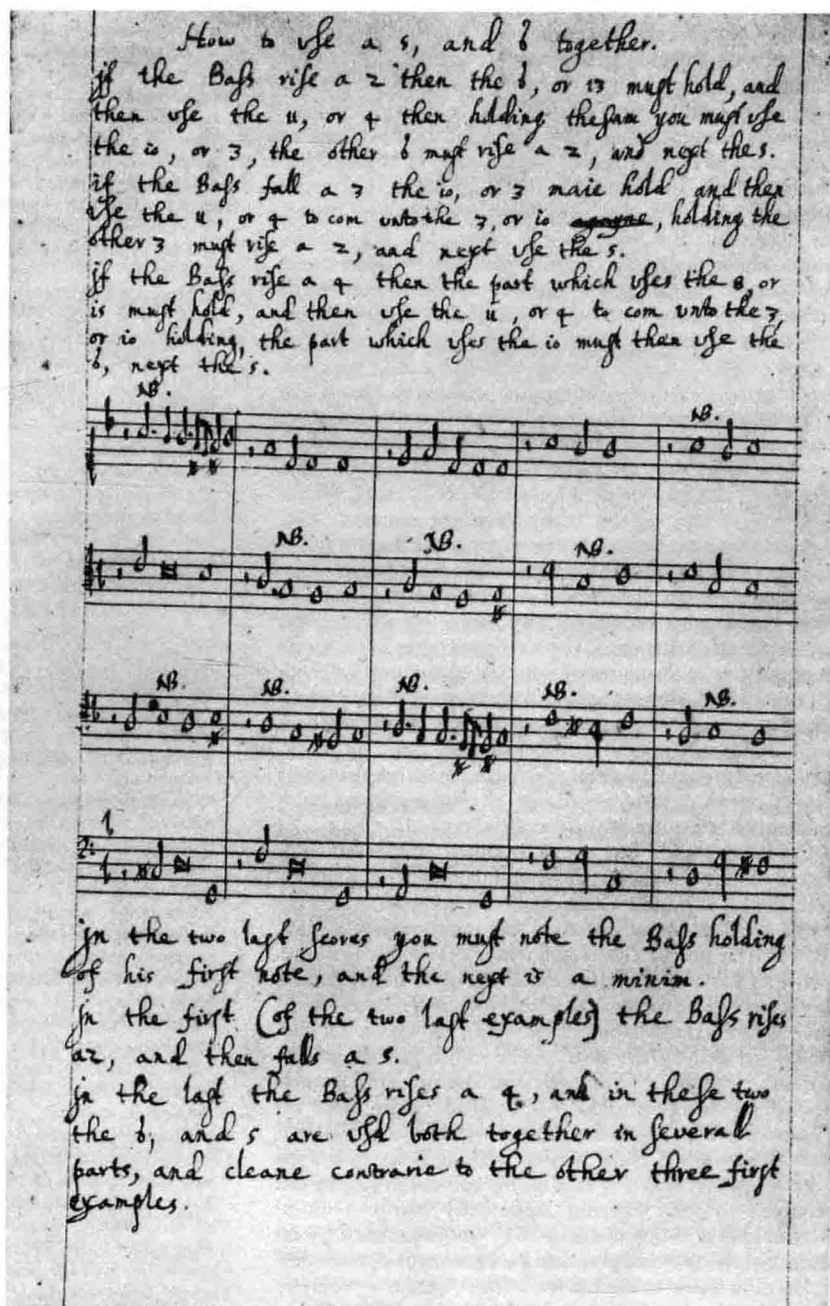 How to vse a 5, and 6 together.
if the Bass rise a 2 then the 6, or 13 must hold, and
then vse the 11, or 4 then holding thesam you must vse
the 10, or 3, the other 6 must rise a 2, and next the 5.
if the Bass fall a 3 the 10, or 3 maie hold and then
vse the 11, or 4 to com unto the 3, or 10 agayne, holding the
other 3 must rise a 2, and next vse the 5.
if the Bass rise a 4 then the part which vses the 8, or
15 must hold, and then vse the 11, or 4 to com vnto the 3,
or 10 holding, the part which vses the 10 must then vse the
6, next the 5.
NB.
NB.
NB.
NB.
NB.
NB.
NB.
NB.
NB.
NB.
in the two last scores you must note the Bass holding
of his first note, and the next is a minim.
in the first (of the two last examples) the Bass rises
a2, and then falls a 5.
in the last the Bass rises a 4, and in these two
the 6, and 5 are vsd both together in severall
parts, and cleane contrarie to the other three first
examples.